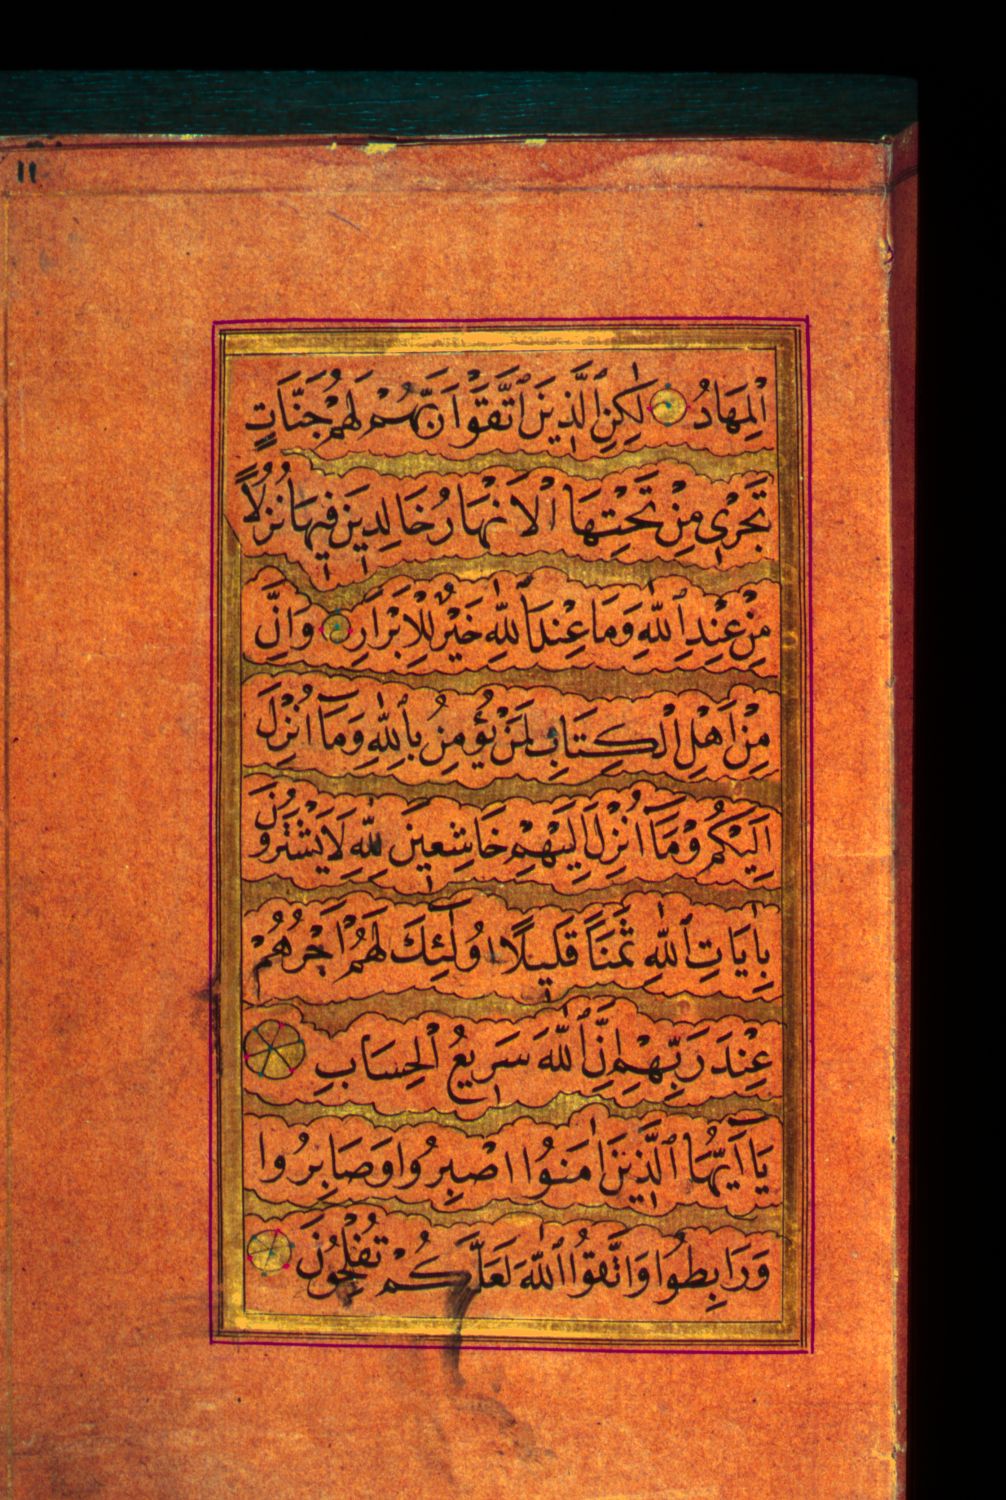 ١١
الْمِهَادُ لٰكِنِ الَّذِينَ اتَّقَوْا رَبَّهُمْ لَهُمْ جَنَّاتٌ
تَجْرِي مِنْ تَحْتِهَا الْاَنْهَارُ خَالِدِينَ فِيهَا نُزُلًا
مِنْ عِنْدِ اللّٰهِ وَمَا عِنْدَ اللّٰهِ خَيْرٌ لِلْاَبْرَارِ وَاِنَّ
مِنْ اَهْلِ الْكِتَابِ لَمَنْ يُؤْمِنُ بِاللّٰهِ وَمَآ اُنْزِلَ
اِلَيْكُمْ وَمَآ اُنْزِلَ اِلَيْهِمْ خَاشِعِينَ لِلّٰهِ لَا يَشْتَرُونَ
بِاٰيَاتِ اللّٰهِ ثَمَنًا قَلِيلًا اُولٰٓئِكَ لَهُمْ اَجْرُهُمْ
عِنْدَ رَبِّهِمْ اِنَّ اللّٰهَ سَرِيعُ الْحِسَابِ
يَآ اَيُّهَا الَّذِينَ اٰمَنُوا اصْبِرُوا وَصَابِرُوا
وَرَابِطُوا وَاتَّقُوا اللّٰهَ لَعَلَّكُمْ تُفْلِحُونَ